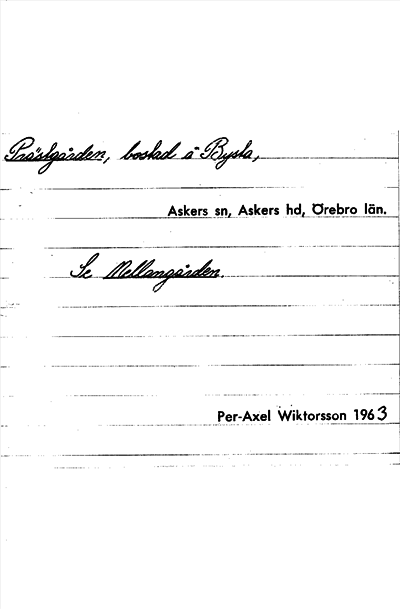 Prästgården, bostad å Bysta,
Askers sn, Askers hd, Örebro län.
Se Mellangården.
Per-Axel Wiktorsson 1963